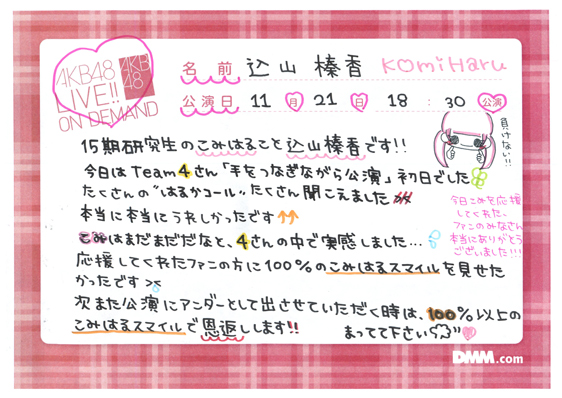 AKB48
LIVE!!
ON DEMAND
AKB
48
名前 込山 榛香 KOMiHaru
公演日 11 月 21 日 18 : 30 公演
15期研究生のこみはること込山榛香です!!
今日はTeam4さん「手をつなぎながら公演」初日でした
たくさんの"はるかコール"たくさん聞こえました!!!
本当に本当にうれしかったです↑↑
こみはまだまだだなと、4さんの中で実感しました…
応援してくれたファンの方に100%のこみはるスマイルを見せた
かったです><
次また公演にアンダーとして出させていただく時は、100%以上の
こみはるスマイルで恩返しします!!
まってて下さい
負けない!!
今日こみを応援
してくれた、
ファンのみなさん
本当にありがとう
ございました!!!
DMM.com